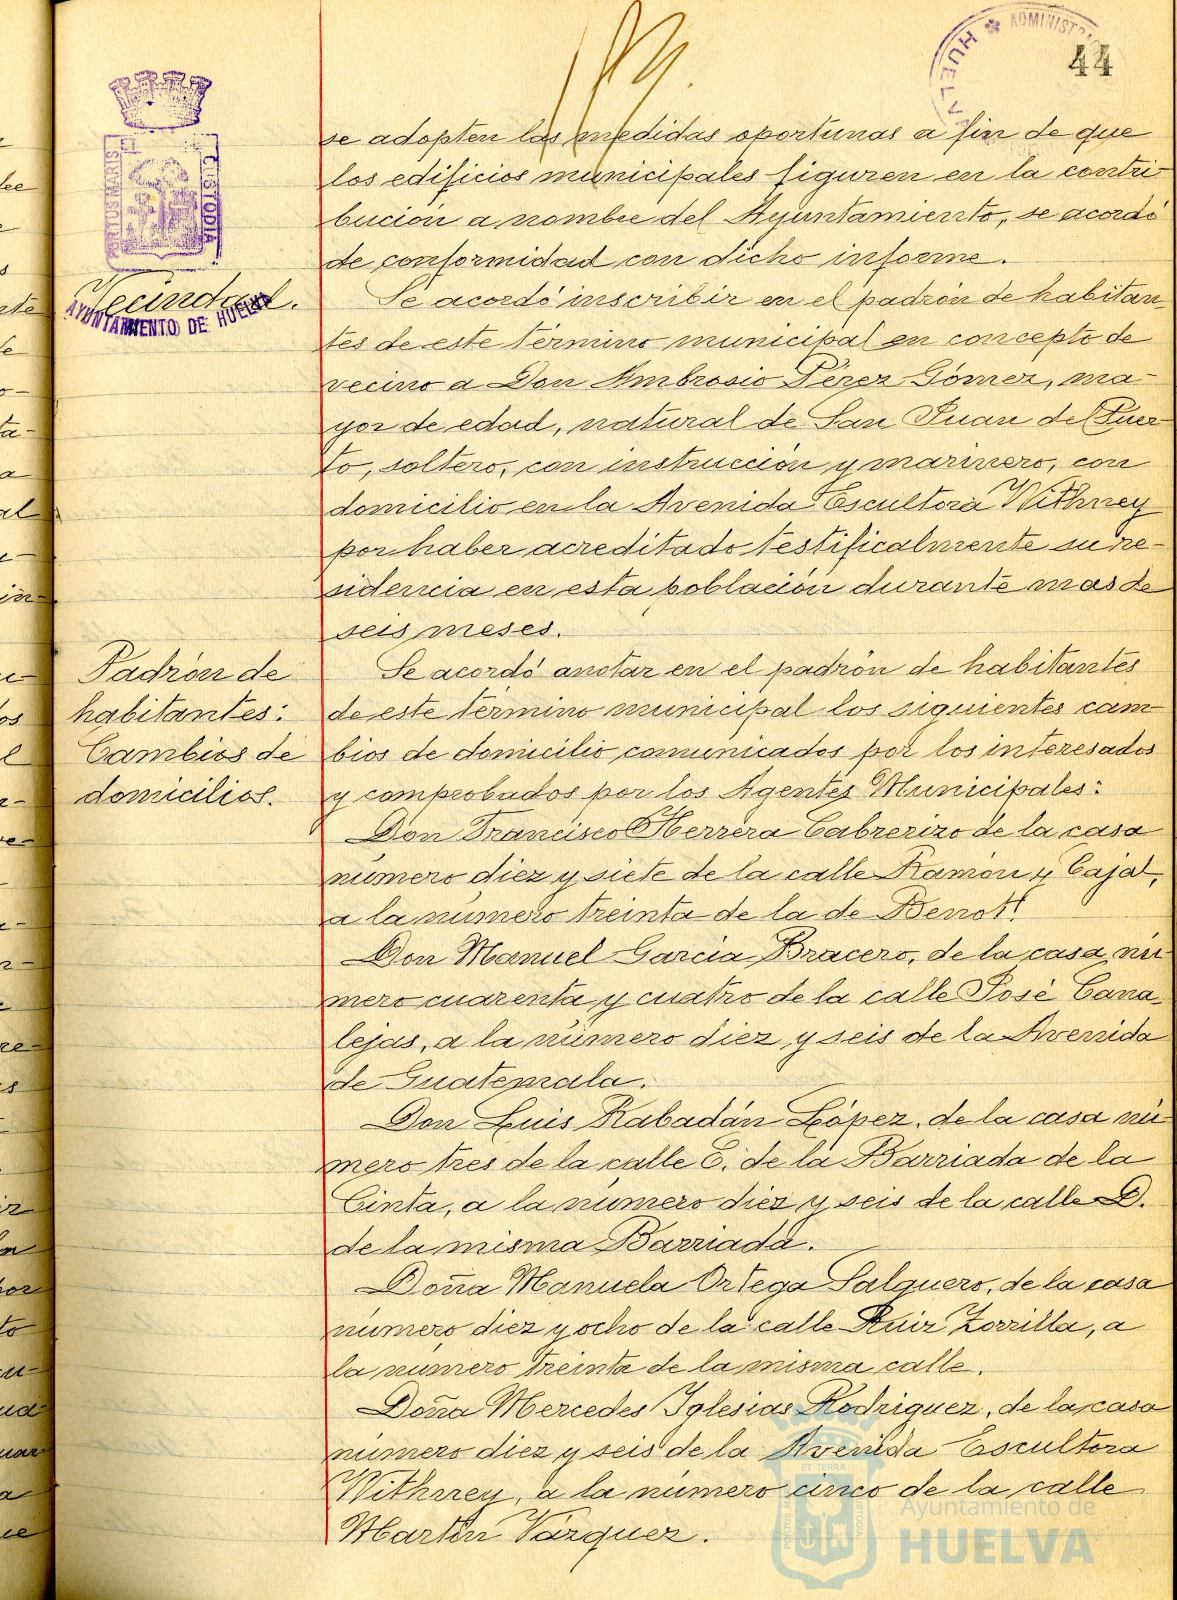 ADMINISTRA
HUELVA
44
PORTUS MARIS
CUSTODIA
AYUNTAMIENTO DE HUELVA
Vecindad.
se adopten las medidas oportunas a fin de que
los edificios municipales figuren en la contri-
bución a nombre del Ayuntamiento, se acordó
de conformidad con dicho informe.
Se acordó inscribir en el padrón de habitan-
tes de este término municipal en concepto de
vecino a Don Ambrosio Pérez Gómez, ma-
yor de edad, natural de San Juan del Puer-
to, soltero, con instrucción y marinero, con
domicilio en la Avenida Escultora Withney
por haber acreditado testificalmente su re-
sidencia en esta población durante mas de
seis meses.
Padrón de
habitantes:
Cambios de
domicilios.
Se acordó anotar en el padrón de habitantes
de este término municipal los siguientes cam-
bios de domicilio comunicados por los interesados
y comprobados por los Agentes Municipales:
Don Francisco Herrera Cabrerizo de la casa
número diez y siete de la calle Ramón y Cajal,
a la número treinta de la de Berrot.
Don Manuel García Bracero, de la casa nú-
mero cuarenta y cuatro de la calle José Cana-
lejas, a la número diez y seis de la Avenida
de Guatemala.
Don Luis Rabadán López, de la casa nú-
mero tres de la calle E. de la Barriada de la
Cinta, a la número diez y seis de la calle D.
de la misma Barriada.
Doña Manuela Ortega Salguero, de la casa
número diez y ocho de la calle Ruiz Zorrilla, a
la número treinta de la misma calle.
Doña Mercedes Iglesias Rodriguez, de la casa
número diez y seis de la Avenida Escultora
Withney, a la número cinco de la calle
Martín Vázquez.
Ayuntamiento de
HUELVA